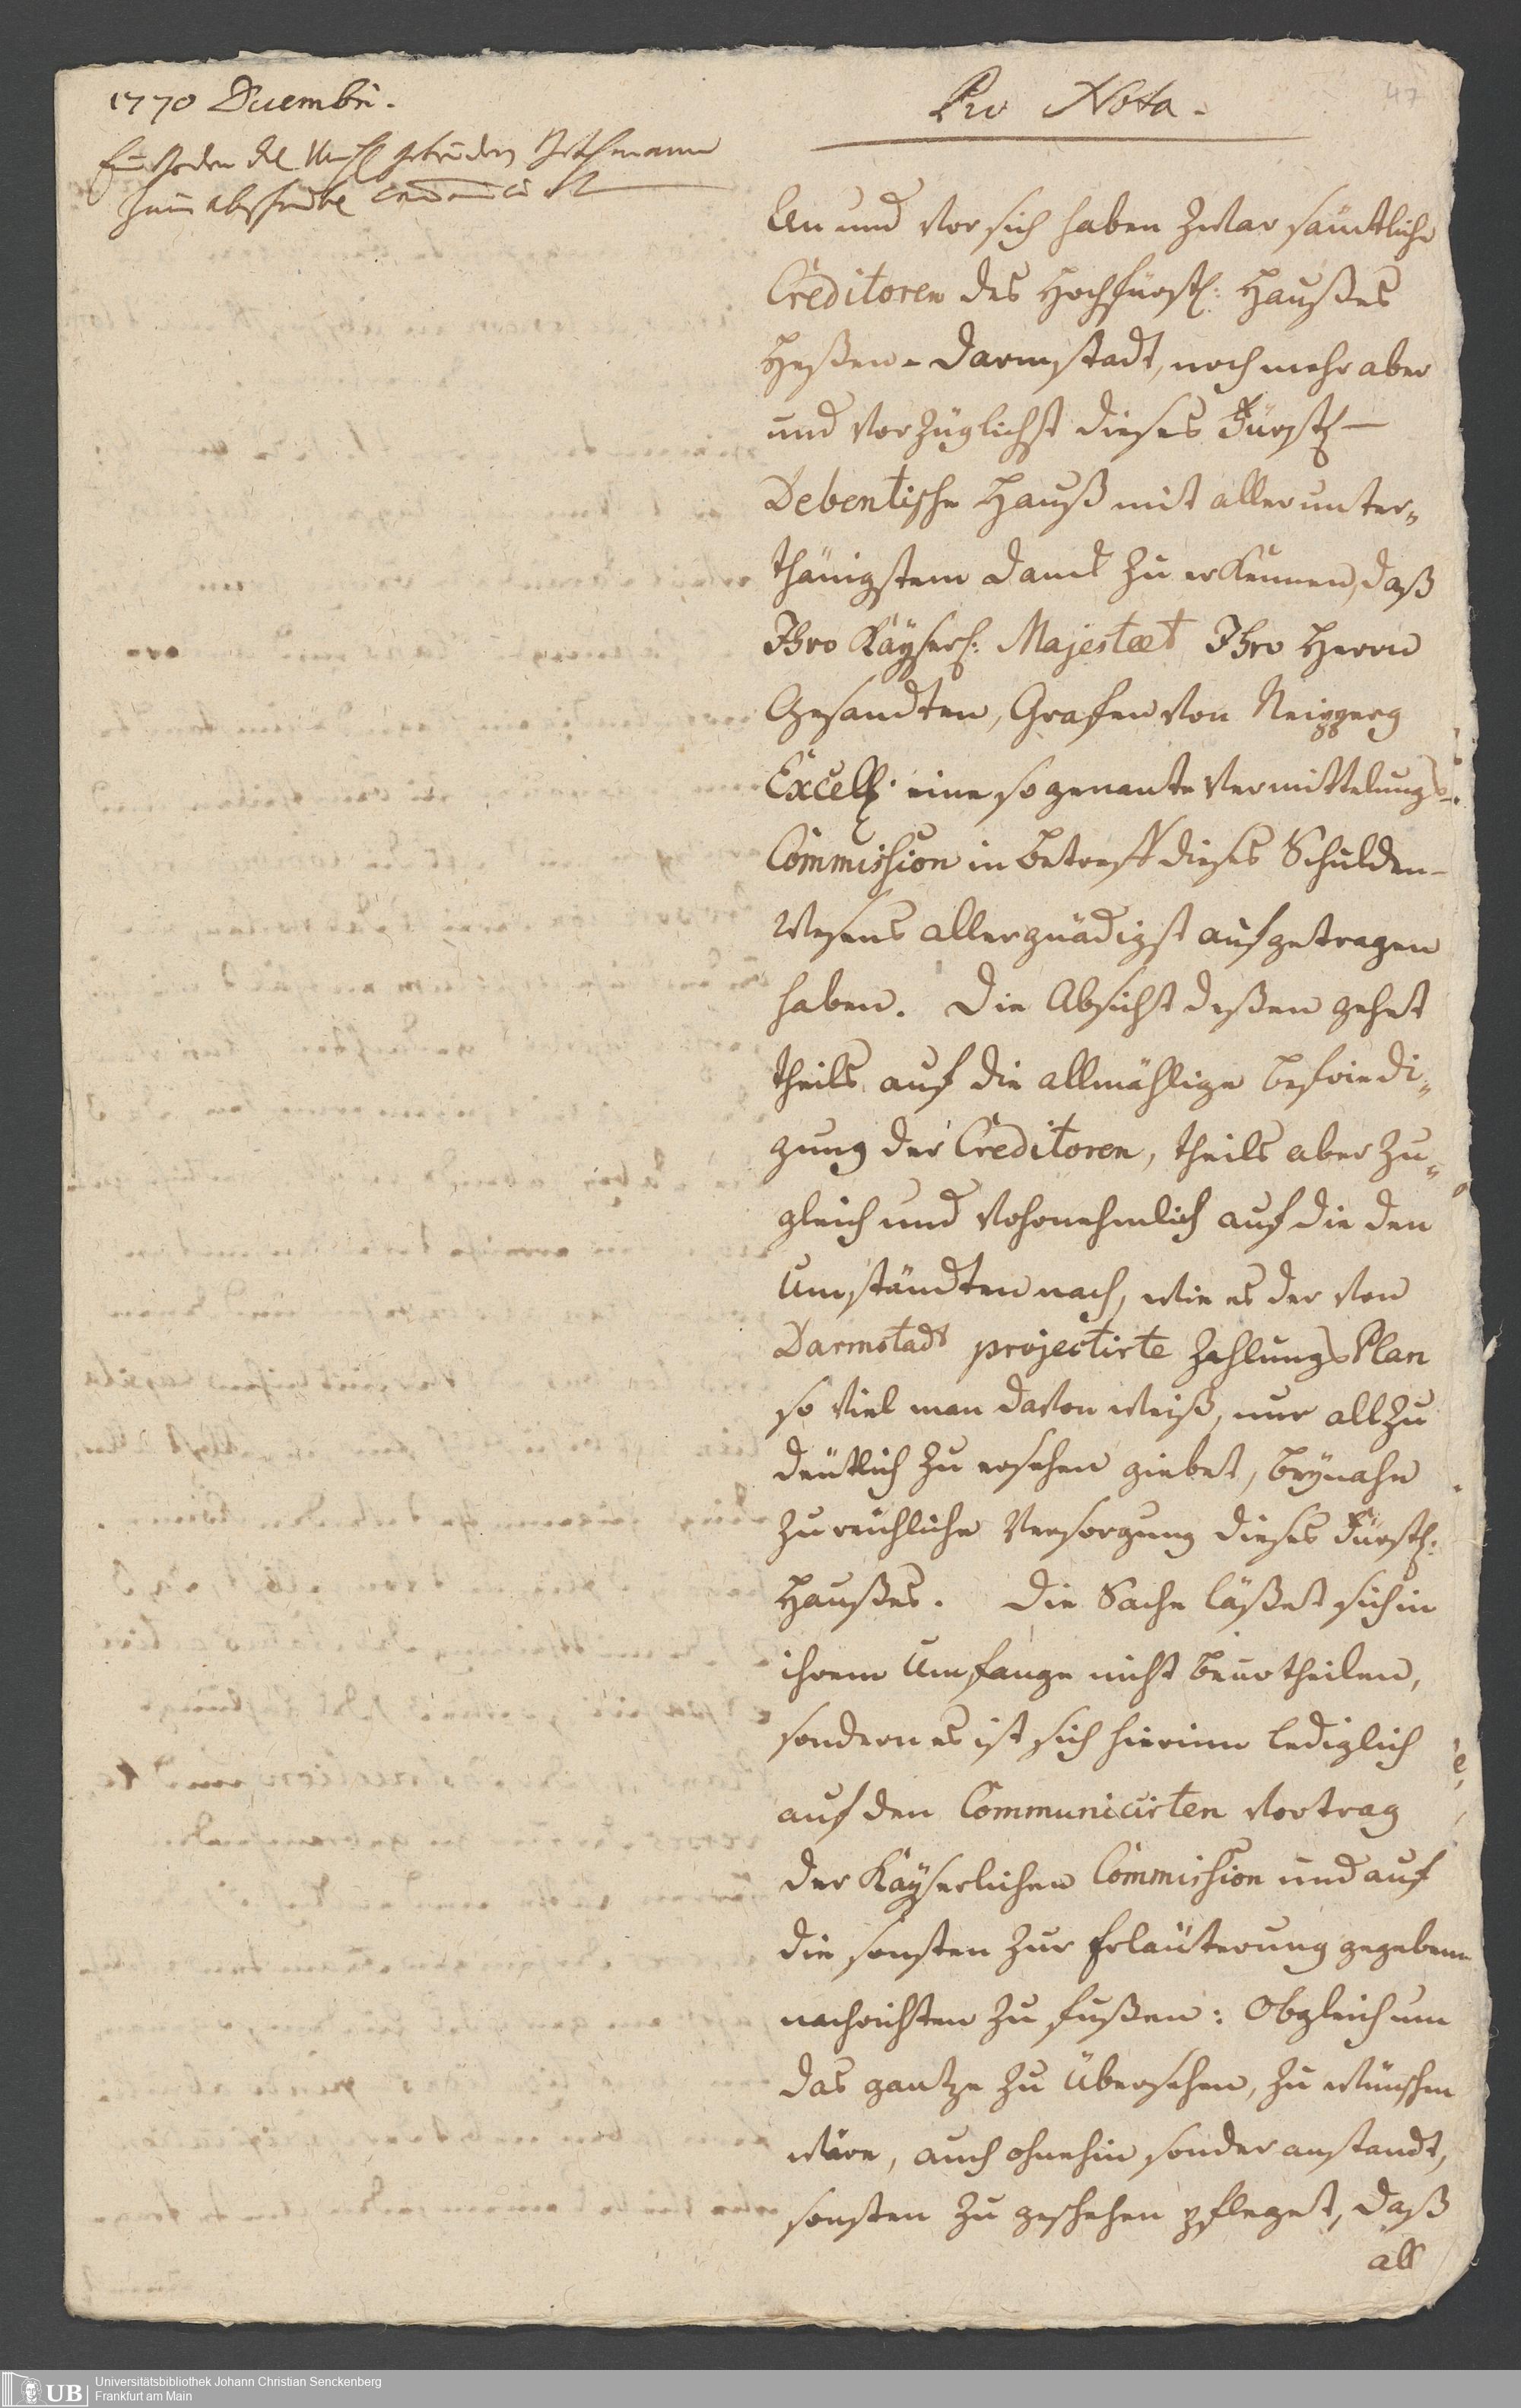 1770 Decembr.
Pro Nota.
47
An und vor sich haben zwar sämtliche
Creditoren des Hochfürstl: Haußes
Heßen-Darmstadt, noch mehr aber
und vorzüglichst dieses Fürstl-
Debentische Hauß mit aller unter„
thänigstem Danck zu erkennen, daß
Ihro Kayserl: Majestæt Ihro Herrn
Gesandten, Grafen von Neipperg
Excell. eine so genante Vermittelungs-
Commission in betreff dieses Schulden-
Wesens allergnädigst aufgetragen
haben. Die Absicht deßen gehet
theils auf die allmählige befriedi„
gung der Creditoren, theils aber zu„
gleich und vohrnehmlich auf die den
Umständten nach, wie es der von
Darmstadt projectirte ZahlungsPlan
so viel man davon weiß, nur allzu
deutlich zu ersehen giebet, beynahe
zu reichliche Versorgung dieses Fürstl:
Haußes. Die Sache läßet sich in
ihrem Umfange nicht beurtheilen,
sondern es ist sich hierinn lediglich
auf den Communicirten Vortrag
der Kayserlichen Commission und auf
die sonsten zur Erläuterung gegebene
nachrichten zu fußen: Obgleich um
das gantze zu übersehen, zu wünschen
wäre, auch ohnehin sonder anstandt,
sonsten zu geschehen pfleget, daß
all
UB
Universitätsbibliothek Johann Christian Senckenberg
Frankfurt am Main